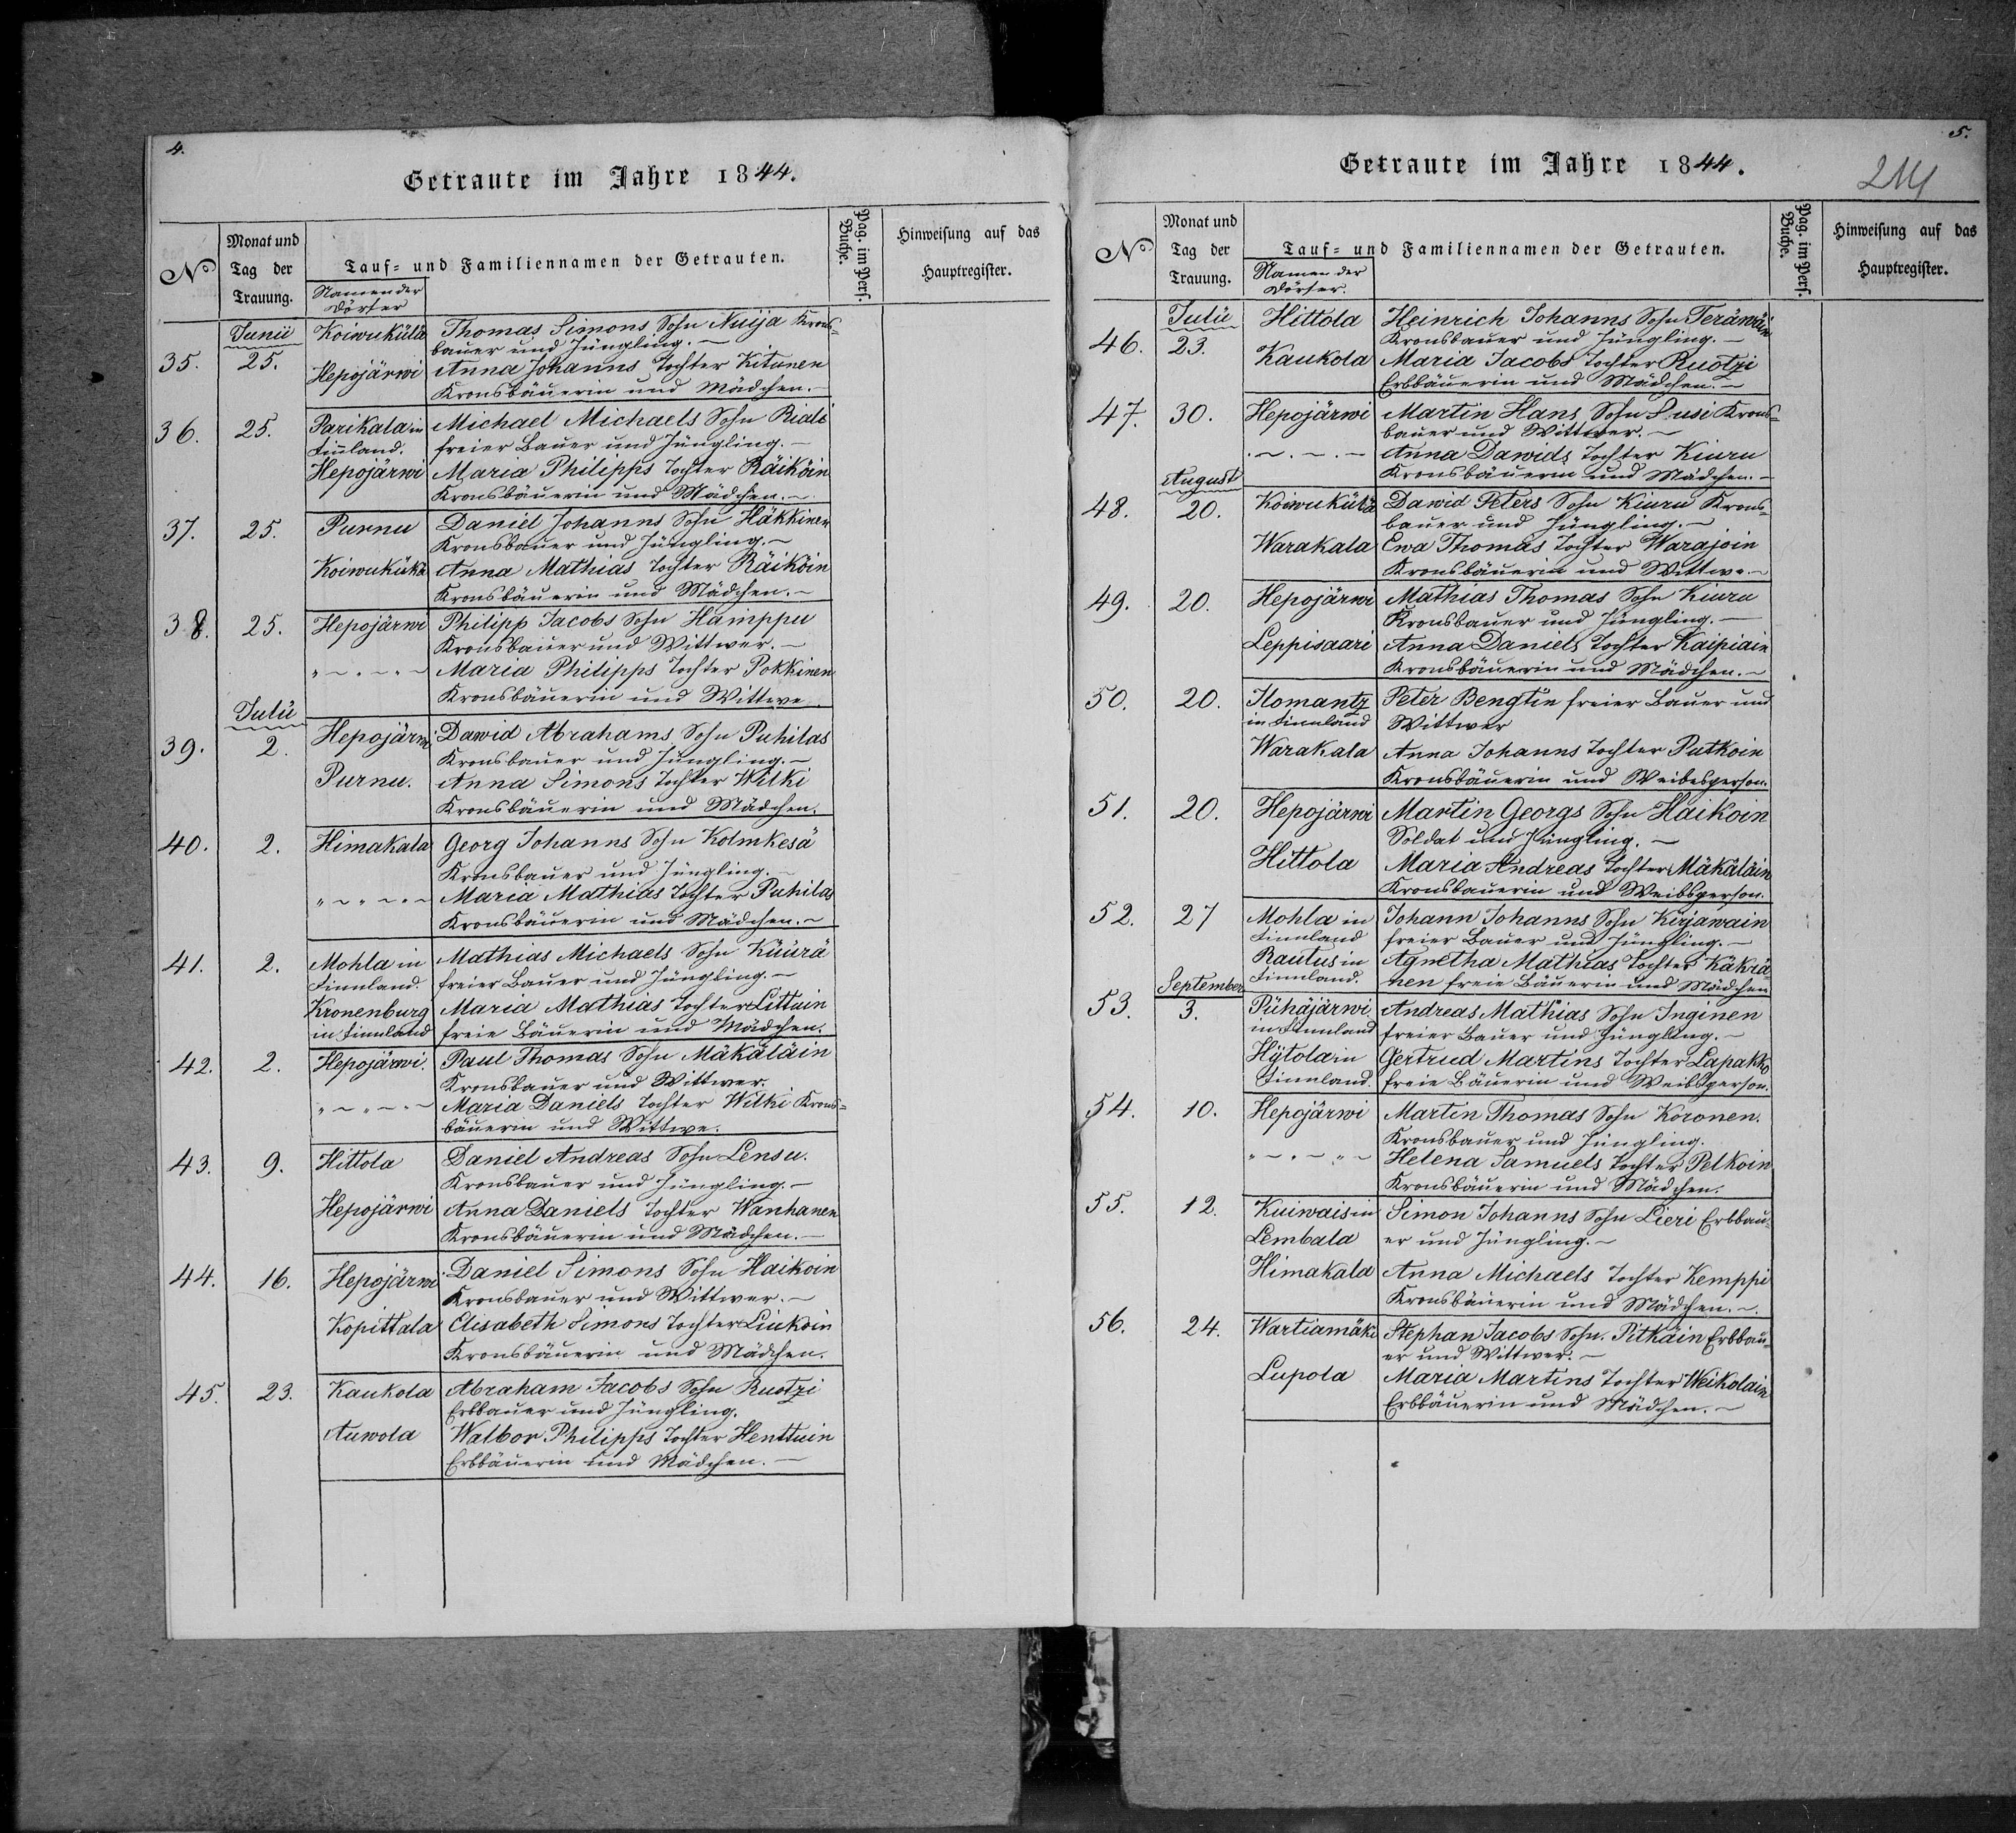 4.
Getraute im Jahre 1844.
No
Monat und
Tag der
Trauung.
Tauf- und Familiennamen der Getrauten.
Namen der
Dörfer
Pag. im Pers.
Buche.
Hinweisung auf das
Hauptregister.
Junii Koiwukülä Thomas Simons Sohn Nuija Krons-
bauer und Jüngling. –
35. 25. Hepojärwi Anna Johanns Tochter Kitunen
Kronsbäuerin und Mädchen. –
36. 25. Parikala in Michael Michaels Sohn Riali
Finnland. freier Bauer und Jüngling. –
Hepojärwi Maria Philipps Tochter Räiköin
Kronsbäuerin und Mädchen. –
37. 25. Purnu Daniel Johanns Sohn Häkkinen
Kronsbauer und Jüngling. –
Koiwukülä Anna Mathias Tochter Räiköin
Kronsbäuerin und Mädchen. –
38. 25. Hepojärwi Philipp Jacobs Sohn Hämppu
Kronsbauer und Wittwer. –
" ~ . ~ . ~ Maria Philipps Tochter Pokkinen
Kronsbäuerin und Wittwe.
Julii
39. 2. Hepojärwi Dawid Abrahams Sohn Puhilas
Kronsbauer und Jüngling. –
Purnu. Anna Simons Tochter Wilki
Kronsbäuerin und Mädchen.
40. 2. Himakala Georg Johanns Sohn Kolmkesä
Kronsbauer und Jüngling. –
" ~ " ~ . ~ Maria Mathias Tochter Puhilas
Kronsbäuerin und Mädchen. –
41. 2. Mohla in Mathias Michaels Sohn Küürä
Finnland. freier Bauer und Jüngling. –
Kronenburg Maria Mathias Tochter Littuin
in Finnland freie Bäuerin und Mädchen.
42. 2. Hepojärwi. Paul Thomas Sohn Mäkäläin
Kronsbauer und Wittwer.
" ~ " ~ . ~ Maria Daniels Tochter Wilki Krons-
bäuerin und Wittwe.
43. 9. Hittola Daniel Andreas Sohn Lensu.
Kronsbauer und Jüngling. –
Hepojärwi Anna Daniels Tochter Wanhanen
Kronsbäuerin und Mädchen. –
44. 16. Hepojärwi Daniel Simons Sohn Haikoin
Kronsbauer und Wittwer. –
Kopittala Elisabeth Simons Tochter Liukoin
Kronsbäuerin und Mädchen.
45. 23. Kaukola Abraham Jacobs Sohn Ruotzi
Erbbauer und Jüngling.
Auwola Walbor Philipps Tochter Henttuin
Erbbäuerin und Mädchen. –
5.
214
Getraute im Jahre 1844.
No
Monat und
Tag der
Trauung.
Tauf- und Familiennamen der Getrauten.
Namen der
Dörfer.
Pag. im Pers.
Buche.
Hinweisung auf das
Hauptregister.
Julii Hittola Heinrich Johanns Sohn Teräwäin
46. 23. Kronsbauer und Jüngling. –
Kaukola Maria Jacobs Tochter Ruotzi
Erbbäuerin und Mädchen. –
47. 30. Hepojärwi Martin Hans Sohn Susi Krons-
bauer und Wittwer. –
. ~ . ~ . ~ Anna Dawids Tochter Kiuru
Kronsbäuerin und Mädchen. –
August
48. 20. Koiwukülä Dawid Peters Sohn Kiuru Krons-
bauer und Jüngling. –
Warakala Ewa Thomas Tochter Warajoin
Kronsbäuerin und Wittwe. –
49. 20. Hepojärwi Mathias Thomas Sohn Kiuru
Kronsbauer und Jüngling. –
Leppisaari Anna Daniels Tochter Kaipiain
Kronsbäuerin und Mädchen. –
50. 20. Ilomantz Peter Bengtin freier Bauer und
in Finnland Wittwer
Warakala Anna Johanns Tochter Putkoin
Kronsbäuerin und Weibsperson.
51. 20. Hepojärwi Martin Georgs Sohn Haikoin
Soldat und Jüngling. –
Hittola Maria Andreas Tochter Mäkäläin
Kronsbäuerin und Weibsperson.
52. 27 Mohla in Johann Johanns Sohn Kirjawain
Finnland freier Bauer und Jüngling. –
Rautus in Agnetha Mathias Tochter Käkrä-
Finnland. nen freie Bäuerin und Mädchen
September
53. 3. Pühäjärwi Andreas Mathias Sohn Inginen
in Finnland freier Bauer und Jüngling. –
Hÿtola in Gertrud Martins Tochter Lapakko
Finnland. freie Bäuerin und Weibsperson.
54. 10. Hepojärwi Martin Thomas Sohn Koronen.
Kronsbauer und Jüngling.
" ~ . ~ . ~ Helena Samuels Tochter Pelkoin
Kronsbäuerin und Mädchen.
55. 12. Kuiwais in Simon Johanns Sohn Lieri Erbbau-
Lembala er und Jüngling. –
Himakala Anna Michaels Tochter Kemppi
Kronsbäuerin und Mädchen. –
56. 24. Wartiamäki Stephan Jacobs Sohn. Pitkäin Erbbau-
er und Wittwer. –
Lupola Maria Martins Tochter Weikolain
Erbbäuerin und Mädchen. –